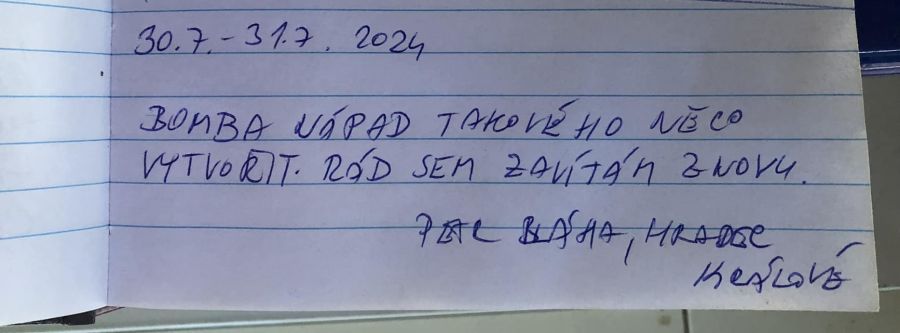 30.7.-31.7. 2024
BOMBA NÁPAD TAKOVÉHO NĚCO
VYTVOŘIT. RÁD SEM ZAVÍTÁM ZNOVU.
PETR BLÁHA, HRADEC
KRÁLOVÉ